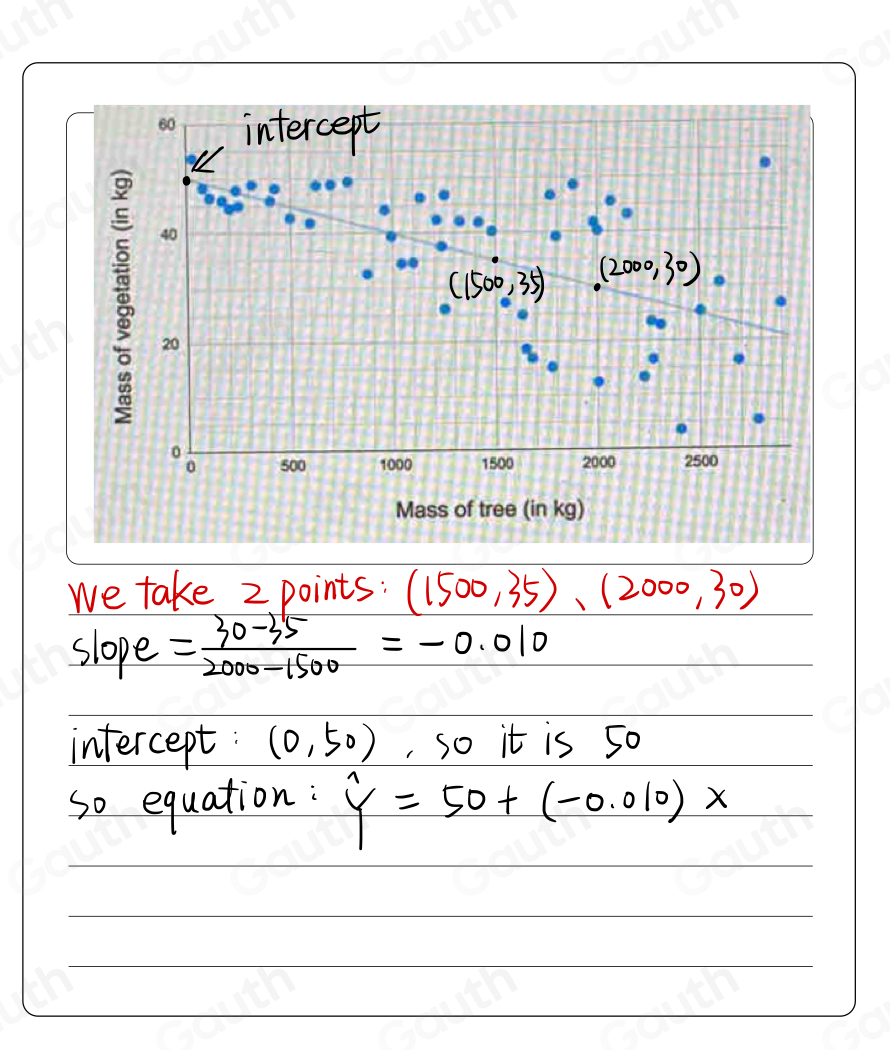 intercept
60
40
20
0
Mass of vegetation (in kg)
(1500,35)
(2000,30)
0 500 1000 1500 2000 2500
Mass of tree (in kg)
we take 2 points: (1500,35)、(2000,30)
slope = 30-35 / 2000-1500 = -0.010
intercept: (0,50), so it is 50
so equation: ŷ = 50 + (-0.010) x
Gauth